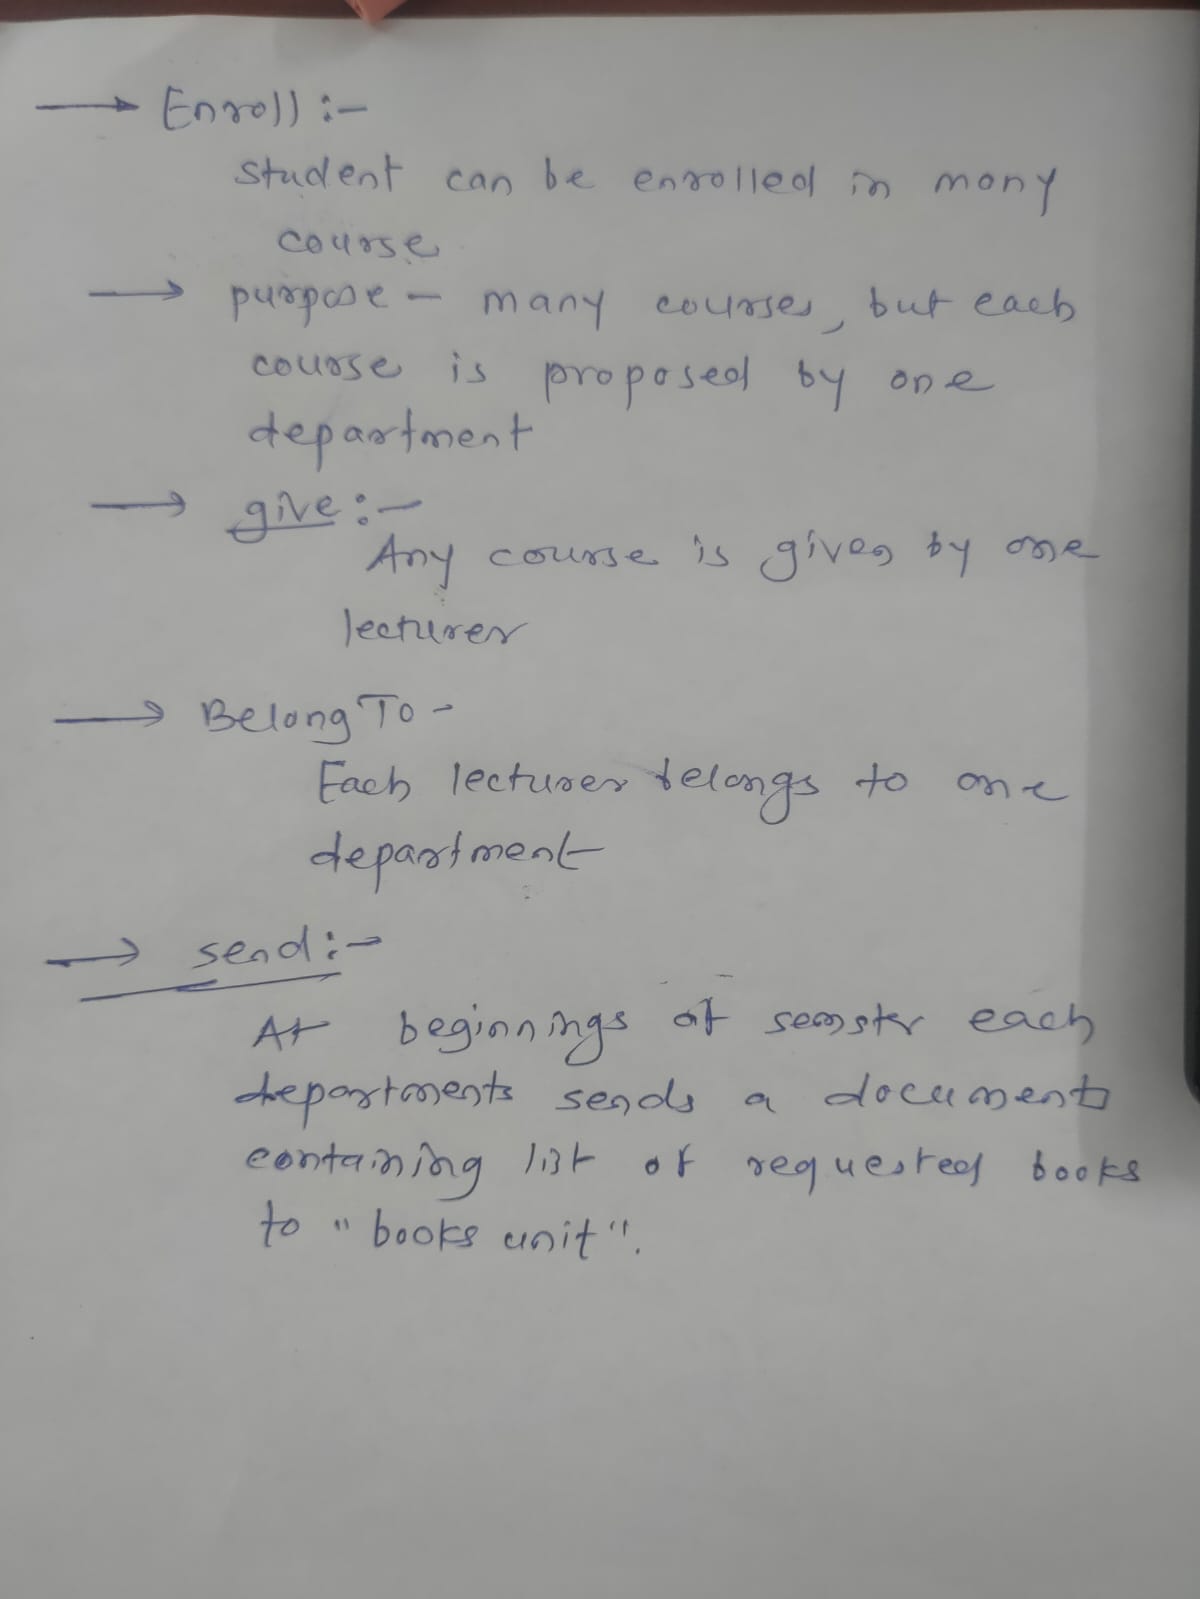 → Enroll :-
student can be enrolled in many
course
→ purpose - many courses, but each
course is proposed by one
department
→ give :-
Any course is given by one
lecturer
→ Belong To -
Each lecturer belongs to one
department
→ send :-
At beginnings of semster each
departments sends a document
containing list of requested books
to "books unit".